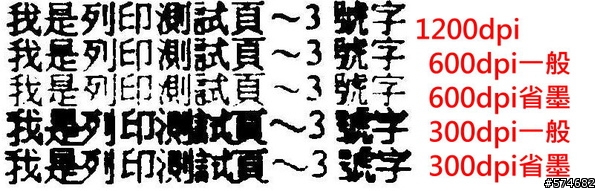 我是列印測試頁～3 號字 1200dpi
我是列印測試頁～3 號字 600dpi一般
我是列印測試頁～3 號字 600dpi省墨
我是列印測試頁～3 號字 300dpi一般
我是列印測試頁～3 號字 300dpi省墨
#574682